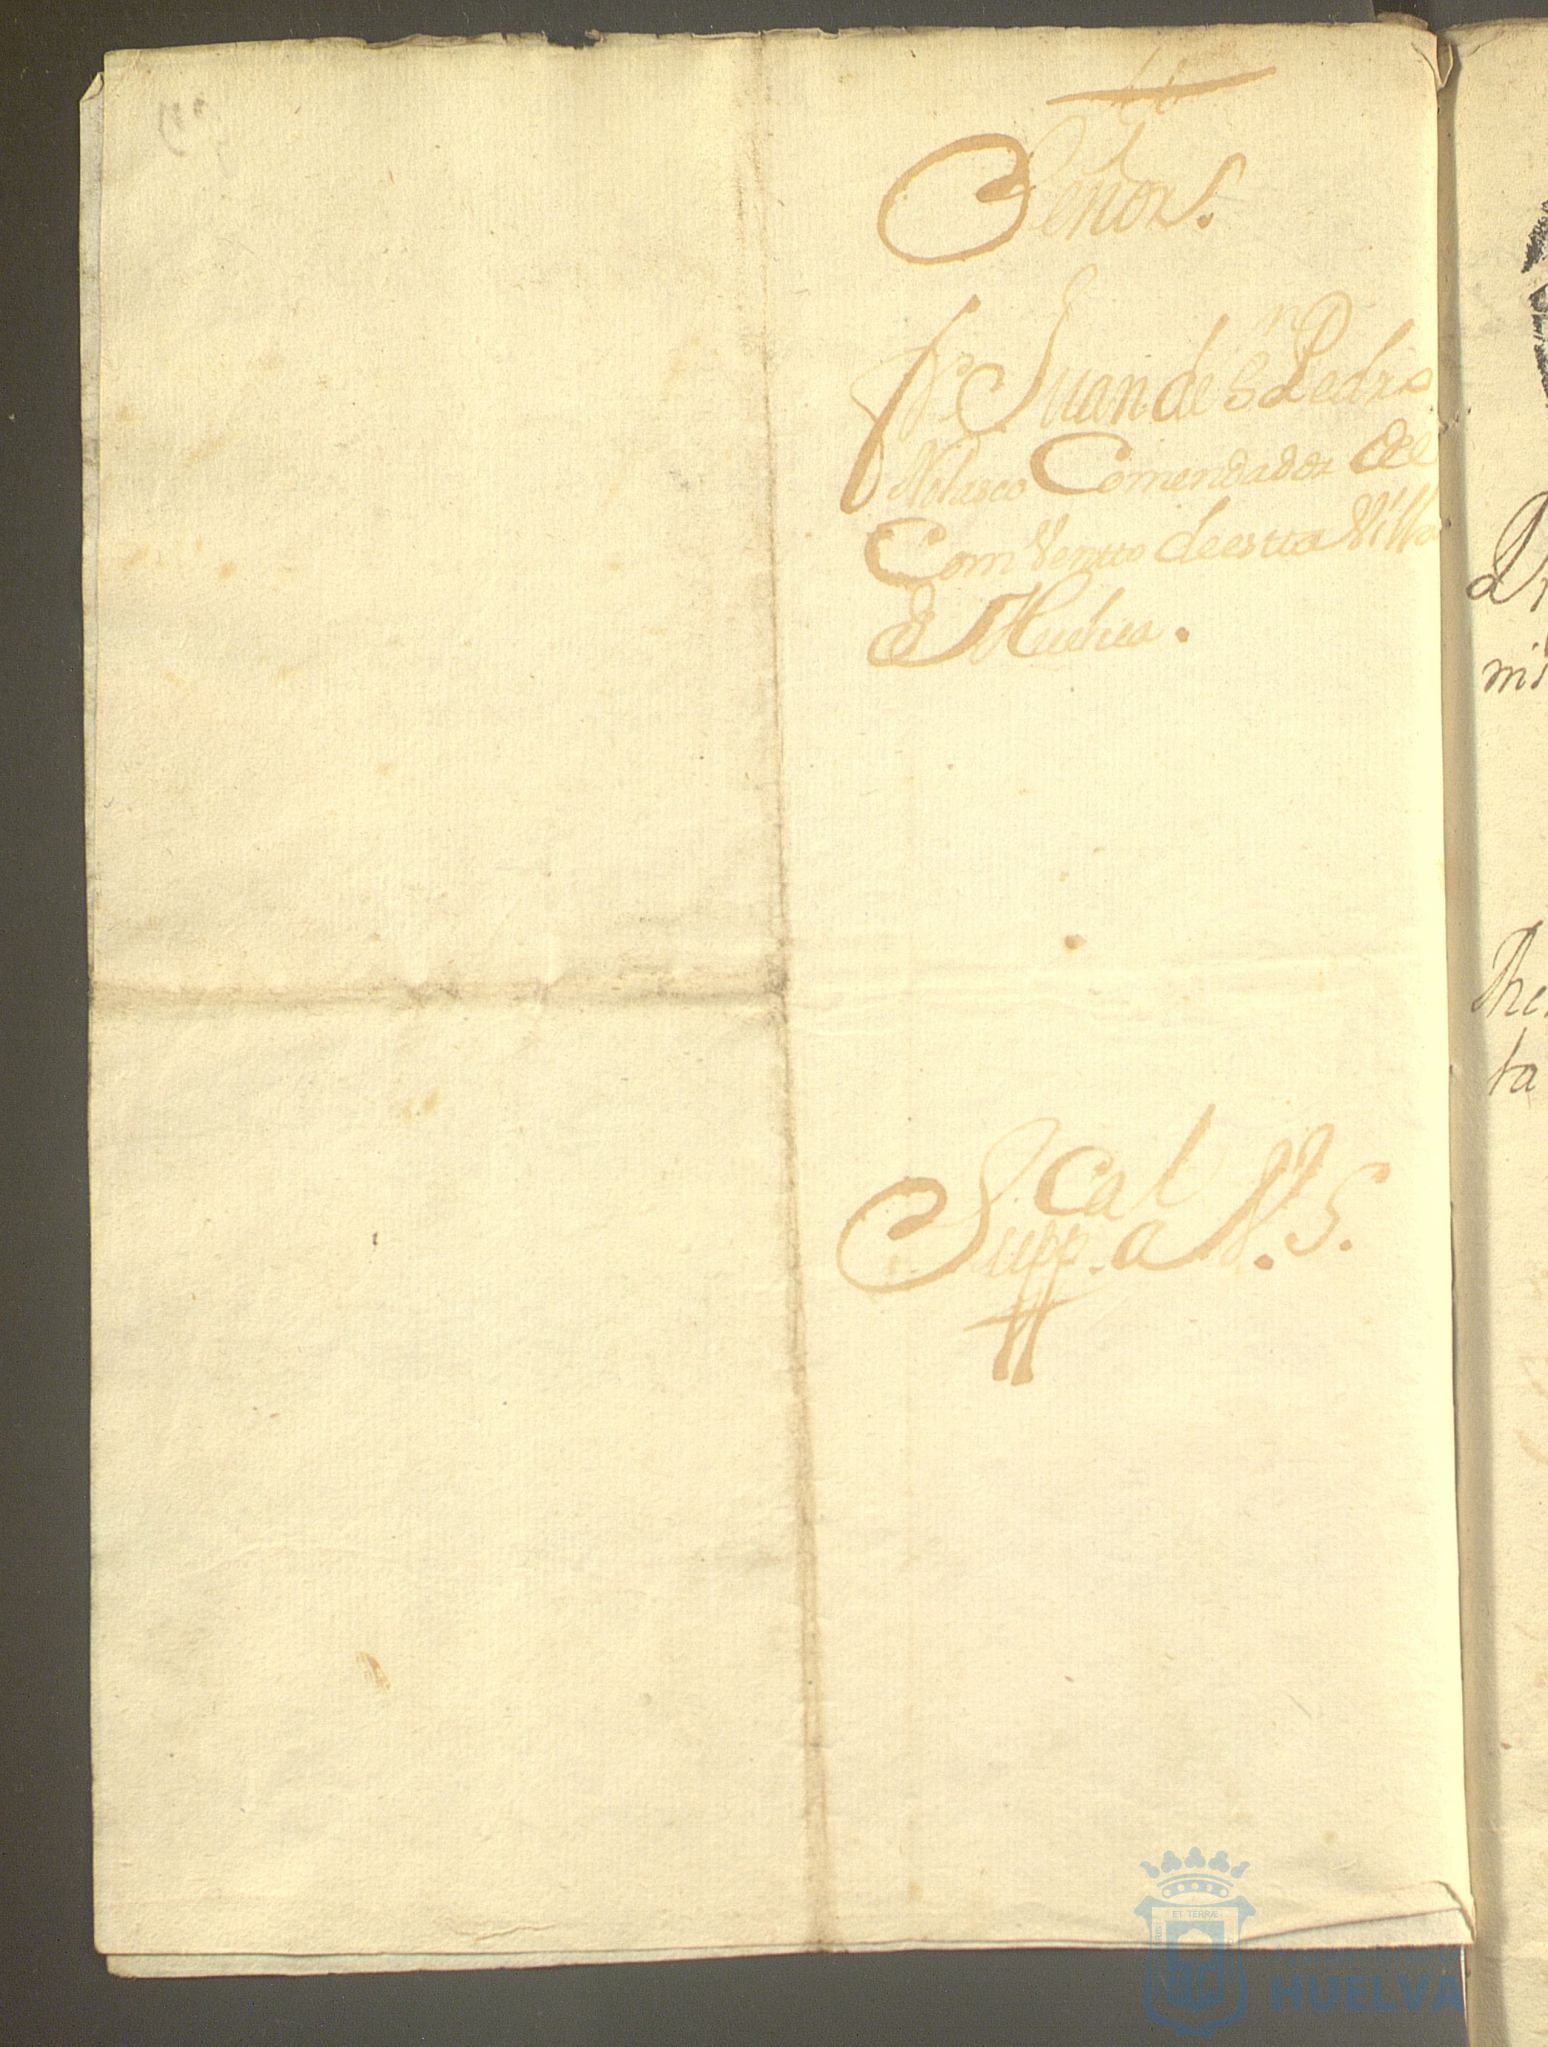 Señor.
fr. Juan de Sn Pedro
Nolasco Comendador del
Comventto de estta Villa
de Huelva.
Supp.ca a V. S.
ET TERRÆ
HUELVA